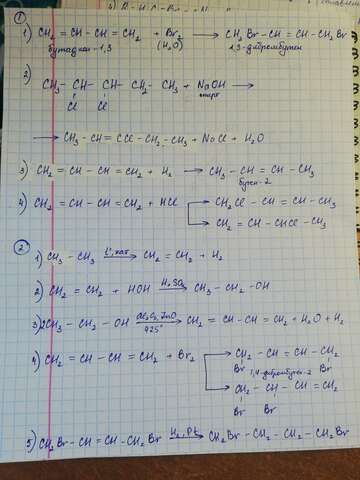 ①
1) CH₂ = CH – CH = CH₂ + Br₂ → CH₂Br – CH = CH – CH₂Br
бутадиен-1,3 (H₂O) 1,3-дибромбутен
2)
CH₃ – CH – CH – CH₂ – CH₃ + NaOH →
Cl Cl спирт
→ CH₃ – CH = CCl – CH₂ – CH₃ + NaCl + H₂O
3) CH₂ = CH – CH = CH₂ + H₂ → CH₃ – CH = CH – CH₃
бутен-2
4) CH₂ = CH – CH = CH₂ + HCl → CH₂Cl – CH = CH – CH₃
→ CH₂ = CH – CHCl – CH₃
②
1) CH₃ – CH₃ t°, кат → CH₂ = CH₂ + H₂
2) CH₂ = CH₂ + HOH H₂SO₄ → CH₃ – CH₂ – OH
3) 2CH₃ – CH₂ – OH Al₂O₃, ZnO → CH₂ = CH – CH = CH₂ + H₂O + H₂
425°
4) CH₂ = CH – CH = CH₂ + Br₂ → CH₂ – CH = CH – CH₂
Br 1,4-дибромбутен-2 Br
→ CH₂ – CH – CH = CH₂
Br Br
5) CH₂Br – CH = CH – CH₂Br H₂, Pt → CH₂Br – CH₂ – CH₂ – CH₂Br